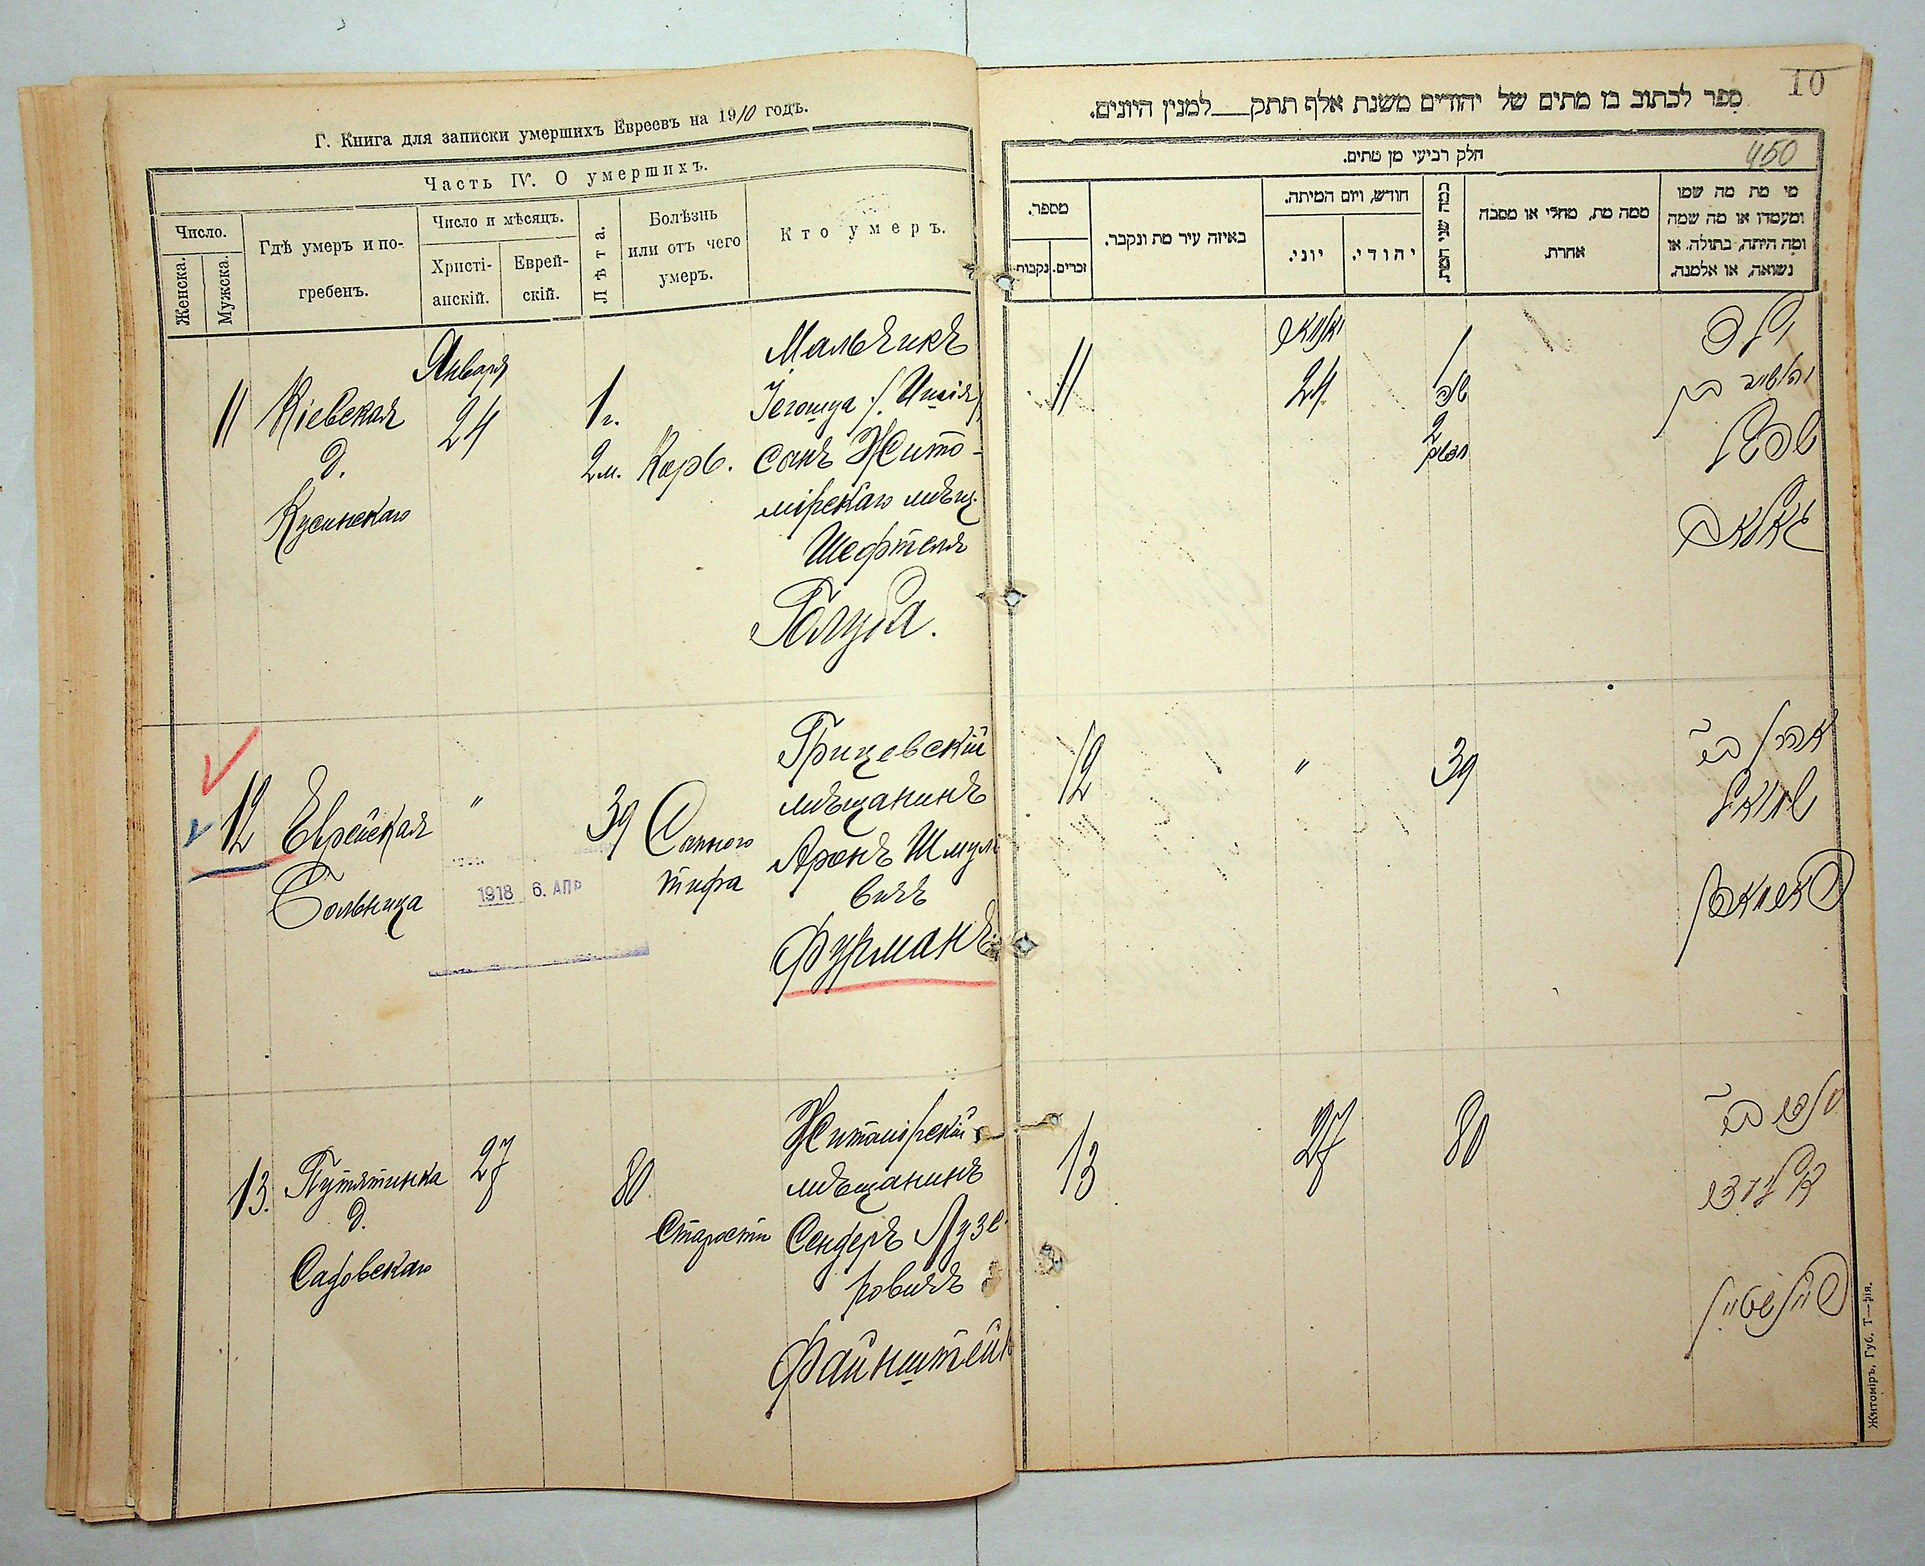 Г. Книга для записки умершихъ Евреевъ на 1910 годъ.
Часть IV. О умершихъ.
Число.
Женска.
Мужска.
Гдѣ умеръ и по-
гребенъ.
Число и мѣсяцъ.
Христі-
анскій.
Еврей-
скій.
Лѣта.
Болѣзнь
или отъ чего
умеръ.
Кто умеръ.
11
Кіевская
д.
Кусинскаго
Января
24
1 г.
2 м.
Корь.
Мальчикъ
Іегошуа /:Ишія/
сынъ Жито-
мірскаго мѣщ.
Шефтеля
Голуба.
12
Еврейская
Больница
"
1918 6. АПР
39
Сыпного
тифа
Грицевскій
мѣщанинъ
Аронъ Шмуле
вичъ
Фурманъ
13.
Путятинка
д.
Садовскаго
27
80
Старости
Житомірскій
мѣщанинъ
Сендеръ Лузе-
ровичъ
Файнштейн
10
ספר לכתוב בו מתים של יהודים משנת אלף תתק למנין היונים.
450
חלק רביעי מן מתים.
מספר.
נקבות.
זכרים.
באיזה עיר מת ונקבר.
חודש, ויום המיתה.
יוני.
יהודי.
כמה שני המת.
ממה מת, מחלי או מסבה
אחרת.
מי מת מה שמו
ומעמדו או מה שמה
ומה היתה, בתולה, או
נשואה, או אלמנה.
11
יאנואר
24
1
שנה
2
חדשים
ילד
יהושיע בן
שפטל
גאלוב
12
"
39
אהרן בר'
שמואל
פורמאן
13
27
80
סענדער בר'
פיינשטיין
Житоміръ, Губ. Т—фія.